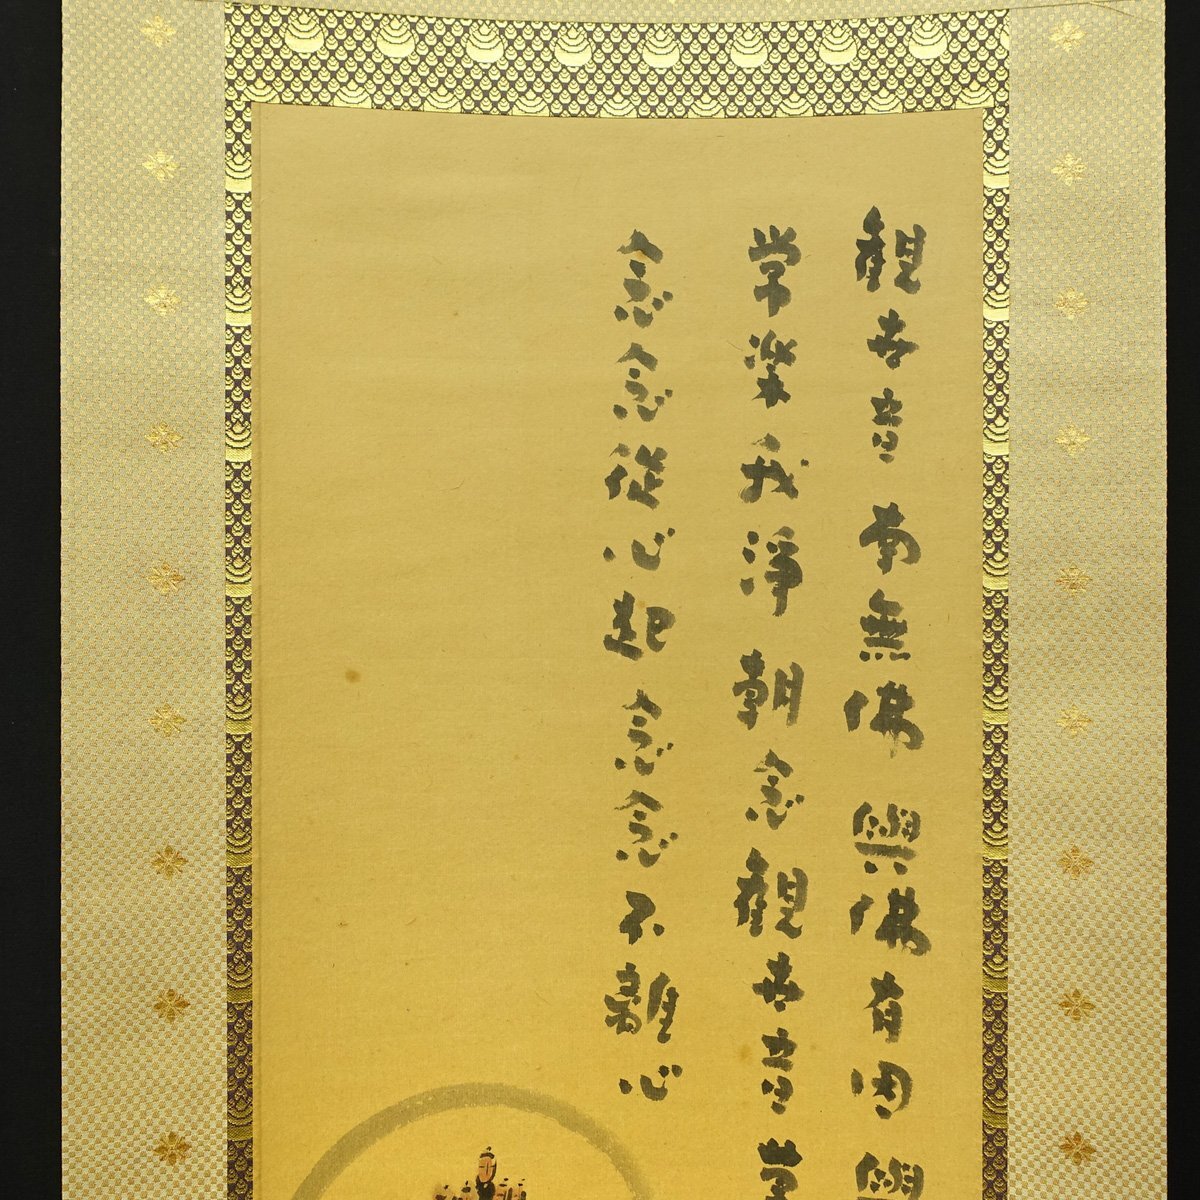 観世音南無佛與佛有因與
常楽我淨朝念観世音暮
念念従心起念念不離心